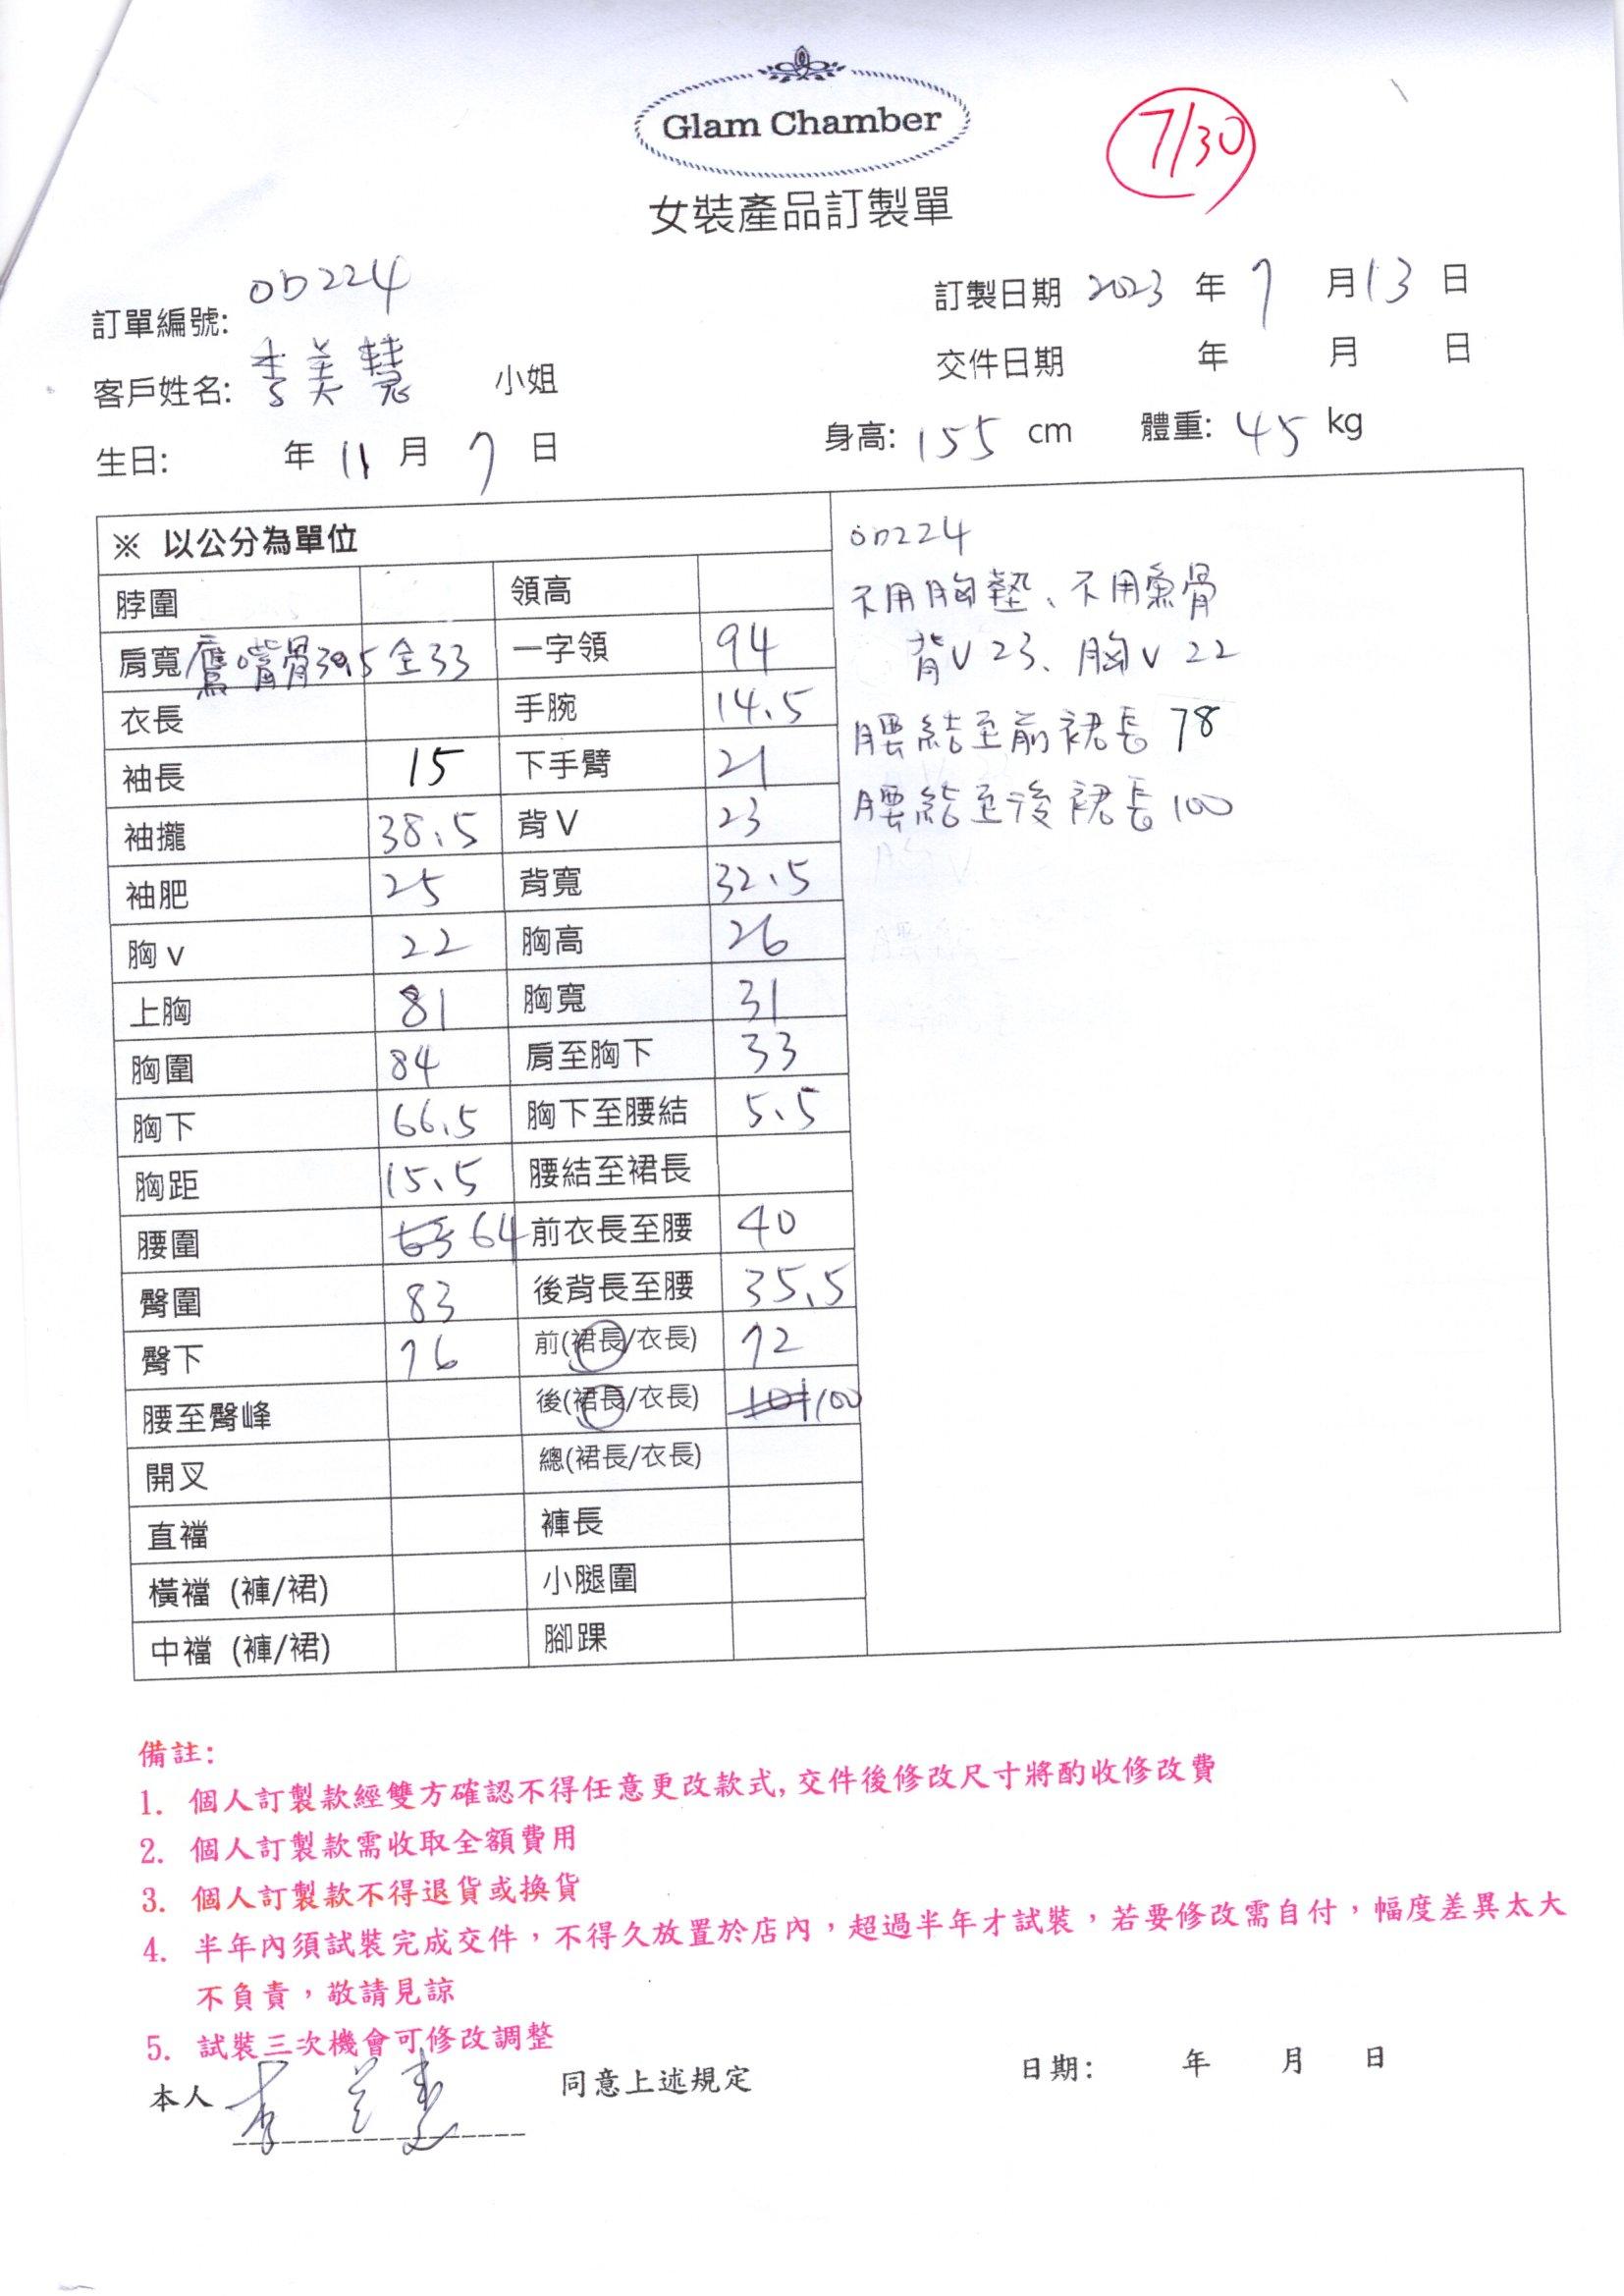 Glam Chamber
7/30
女裝產品訂製單
訂單編號: OD224
訂製日期 2023 年 7 月 13 日
客戶姓名: 李美慧 小姐
交件日期 年 月 日
生日: 年 11 月 7 日
身高: 155 cm 體重: 45 kg
※ 以公分為單位
脖圍 領高
肩寬 鷹嘴骨39.5 全33 一字領 94
衣長 手腕 14.5
袖長 15 下手臂 21
袖攏 38.5 背V 23
袖肥 25 背寬 32.5
胸v 22 胸高 26
上胸 81 胸寬 31
胸圍 84 肩至胸下 33
胸下 66.5 胸下至腰結 5.5
胸距 15.5 腰結至裙長
腰圍 64 前衣長至腰 40
臀圍 83 後背長至腰 35.5
臀下 76 前(裙長/衣長) 72
腰至臀峰 後(裙長/衣長) 101 100
開叉 總(裙長/衣長)
直襠 褲長
橫襠 (褲/裙) 小腿圍
中襠 (褲/裙) 腳踝
OD224
不用胸墊、不用魚骨
背V 23、胸V 22
腰結至前裙長 78
腰結至後裙長 100
備註:
1. 個人訂製款經雙方確認不得任意更改款式,交件後修改尺寸將酌收修改費
2. 個人訂製款需收取全額費用
3. 個人訂製款不得退貨或換貨
4. 半年內須試裝完成交件，不得久放置於店內，超過半年才試裝，若要修改需自付，幅度差異太大
不負責，敬請見諒
5. 試裝三次機會可修改調整
本人 李美慧 同意上述規定
日期: 年 月 日